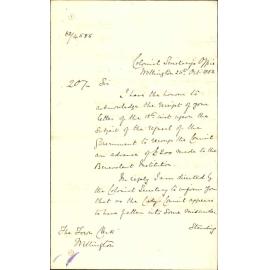 82/4585
Colonial Secretary's Office
Wellington 20th Oct 1882
207 Sir
I have the honour to
acknowledge the receipt of your
letter of the inst upon the
subject of the request of the
Government to recoup the Council
an advance of £200 made to the
Benevolent Institution.
In reply I am directed by
the Colonial Secretary to inform you
that as the City Council appears
to have fallen into some
The Town Clerk
Wellington